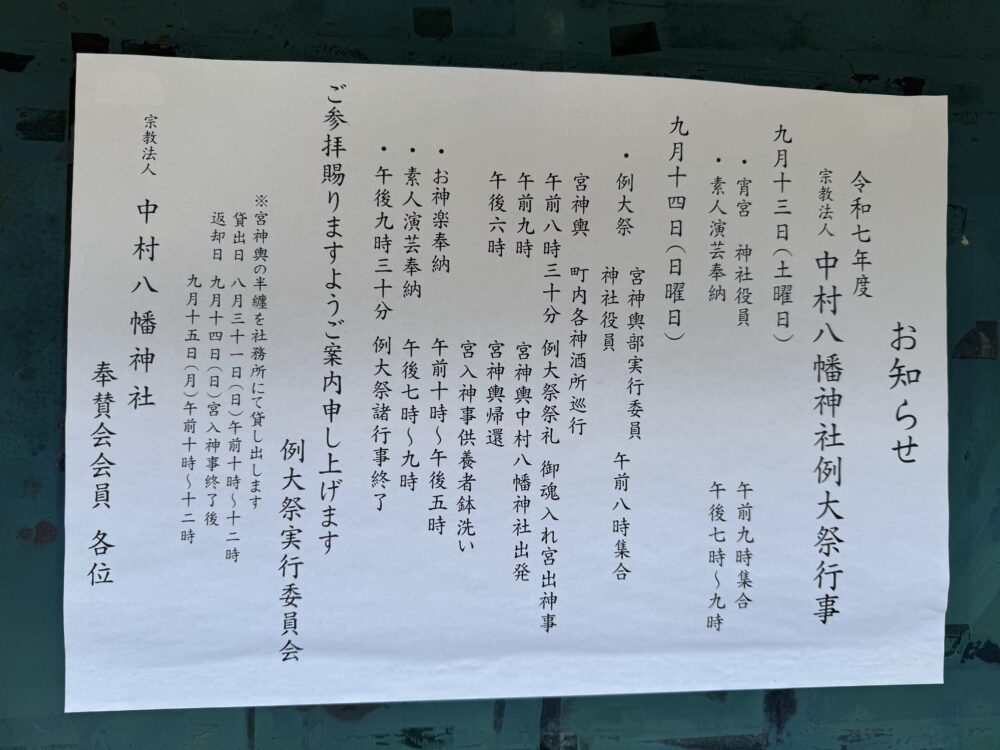 お知らせ
令和七年度
宗教法人 中村八幡神社例大祭行事
九月十三日(土曜日)
・宵宮 神社役員 午前九時集合
・素人演芸奉納 午後七時~九時
九月十四日(日曜日)
・例大祭 宮神輿部実行委員 午前八時集合
神社役員
宮神輿 町内各神酒所巡行
午前八時三十分 例大祭祭礼 御魂入れ宮出神事
午前九時 宮神輿中村八幡神社出発
午後六時 宮神輿帰還
宮入神事供養者鉢洗い
・お神楽奉納 午前十時~午後五時
・素人演芸奉納 午後七時~九時
・午後九時三十分 例大祭諸行事終了
ご参拝賜りますようご案内申し上げます
例大祭実行委員会
※宮神輿の半纏を社務所にて貸し出します
貸出日 八月三十一日(日)午前十時~十二時
返却日 九月十四日(日)宮入神事終了後
九月十五日(月)午前十時~十二時
宗教法人 中村八幡神社
奉賛会会員 各位